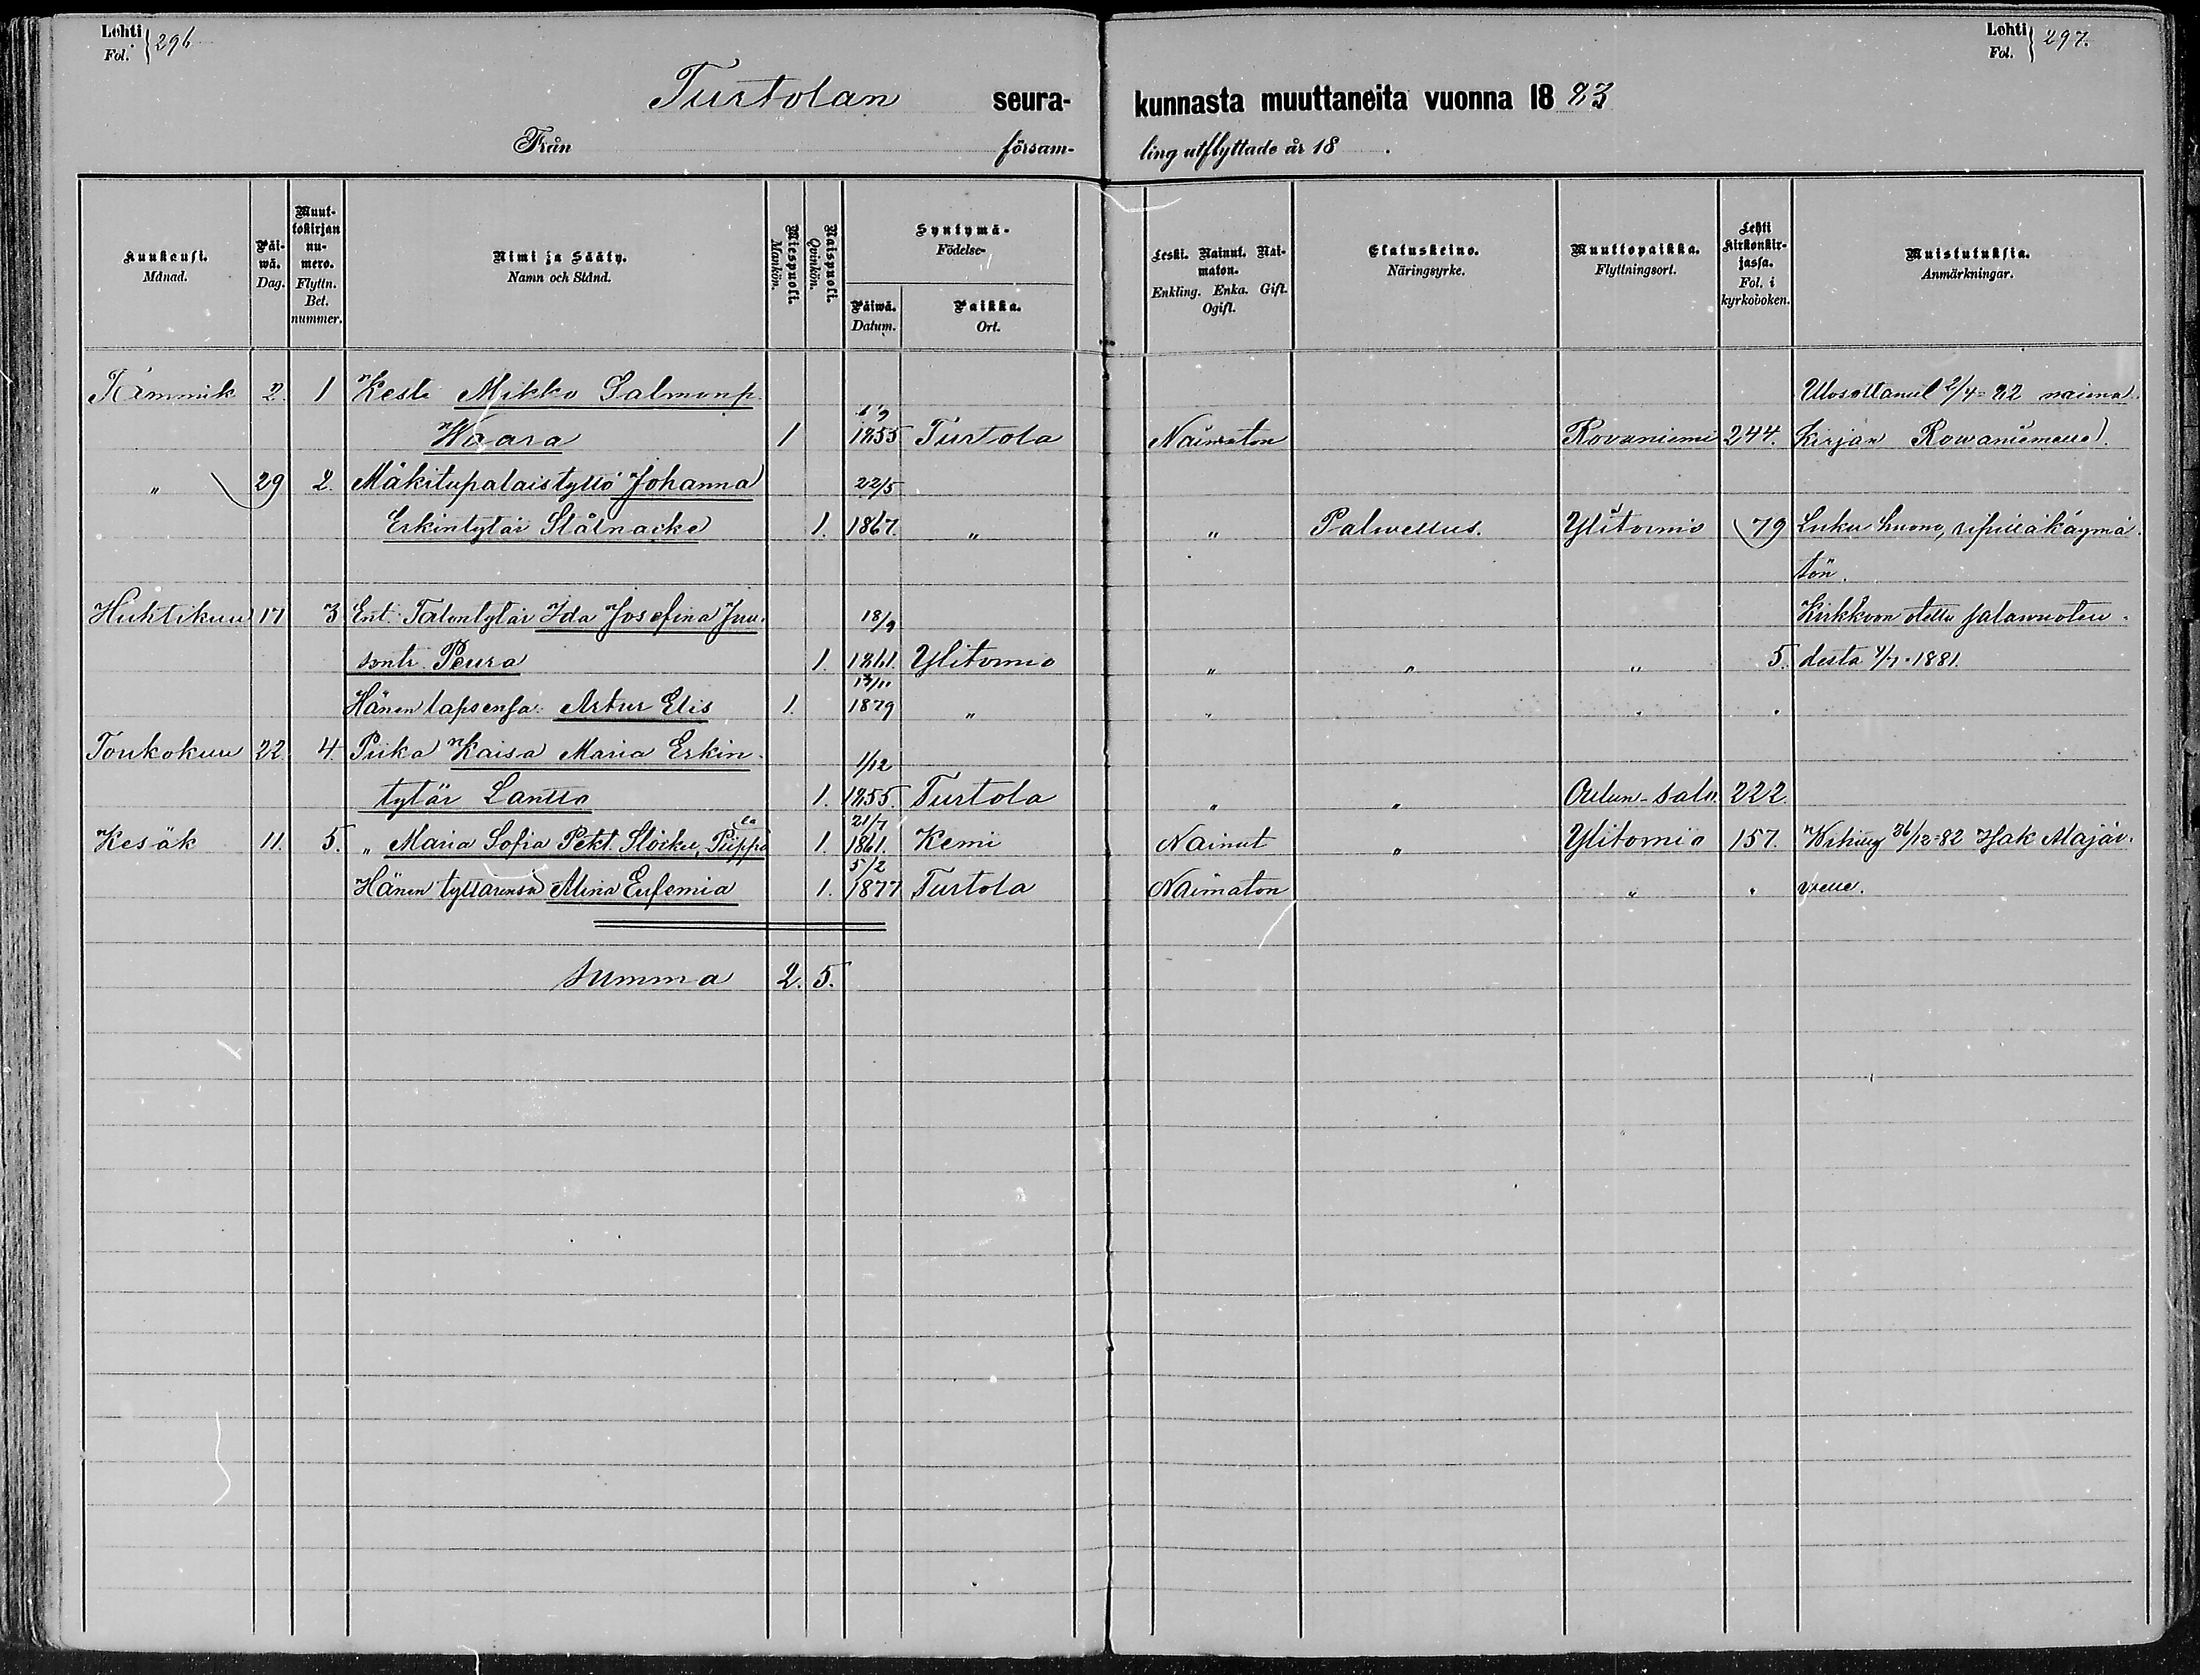 Lehti Fol. 296
Lehti Fol. 297.
Turtolan seura- kunnasta muuttaneita vuonna 18 83
Från församling utflyttade år 18 .
Kuukausi. Månad.
Päiwä. Dag.
Muuttokirjan numero. Flyttn. Bet. nummer.
Nimi ja Sääty. Namn och Stånd.
Miespuoli. Mankön.
Naispuoli. Qvinkön.
Syntymä- Födelse-
Päiwä. Datum.
Paikka. Ort.
Leski. Nainut. Naimaton. Enkling. Enka. Gift. Ogift.
Elatuskeino. Näringsyrke.
Muuttopaikka. Flyttningsort.
Lehti kirkonkirjassa. Fol. i kyrkoboken.
Muistutuksia. Anmärkningar.
Tammik 2. 1 Kesti Mikko Salmonp. Ulosottanut 2/4=82 naima
Waara 1 1855 Turtola Naimaton Rovaniemi 244. kirjan Rowaniemelle).
" 29 2. Mäkitupalaistyttö Johanna 22/5
Erkintytär Stålnacke 1. 1867. " " Palwellus. Ylitornio 79 Luku huono, ripilläkäymä
tön.
Huhtikuu 17 3 Ent. Talontytär Ida Josefina Juu- 18/9 Kirkkoon otettu salawuoteu-
sontr. Peura 1. 1861. Ylitornio " " " 5. desta 4/7.1881.
Hänen lapsensa: Artur Elis 1. 17/11 1879 " " " "
Toukokuu 22. 4. Piika Kaisa Maria Erkin- 1/12
tytär Lantto 1. 1855. Turtola " " Oulun-salo 222
Kesäk 11. 5. " Maria Sofia Pekt. Stoiku, Piippo 1. 21/7 1861. Kemi Nainut " Ylitornio 157. Wihitty 26/12=82 Isak Alajär-
Hänen tyttärensä Alina Eufemia 1. 5/2 1877 Turtola Naimaton " " velle.
Summa 2. 5.